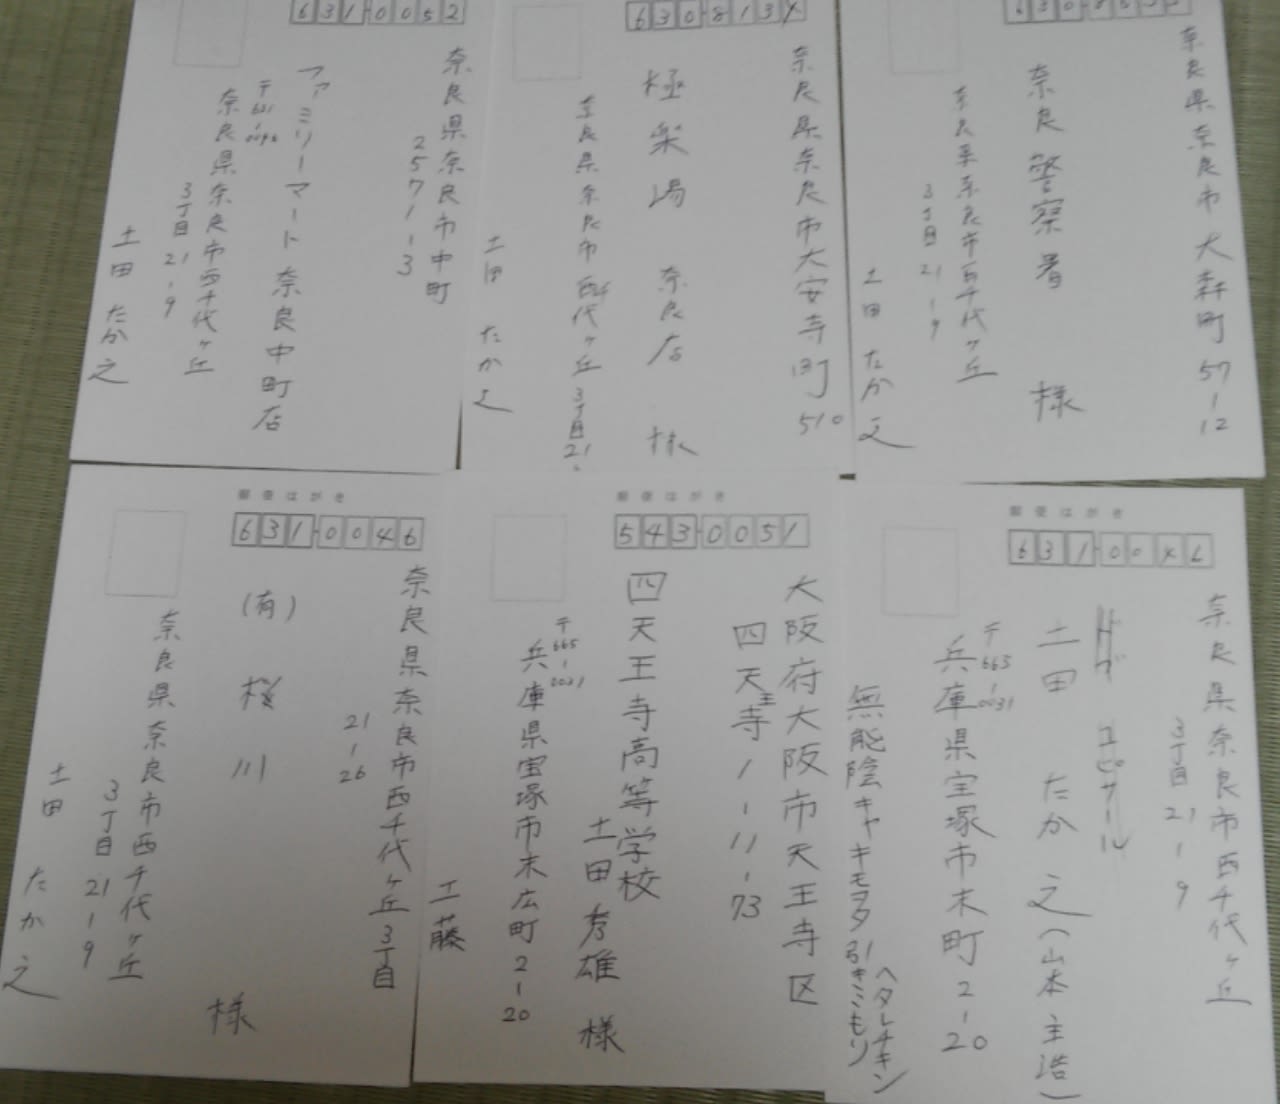 631-0052
奈良県奈良市中町
2571-3
ファミリーマート 奈良中町店
〒631-0046
奈良県奈良市西千代ヶ丘
3丁目21-9
土田 たか之
630-813
奈良県奈良市大安寺町
510
極楽湯 奈良店 様
奈良県奈良市西千代ヶ丘3丁目21
土田 たか之
630-8
奈良県奈良市大森町57-12
奈良警察署 様
奈良県奈良市西千代ヶ丘
3丁目21-9
土田 たか之
郵便はがき
631-0046
奈良県奈良市西千代ヶ丘3丁目
21-26
(有) 桜川 様
奈良県奈良市西千代ヶ丘
3丁目21-9
土田 たか之
郵便はがき
543-0051
大阪府大阪市天王寺区
四天王寺1-11-73
四天王寺高等学校
土田 秀雄 様
〒665-0031
兵庫県宝塚市末広町2-20
工藤
郵便はがき
631-004
奈良県奈良市西千代ヶ丘
3丁目21-9
土田 たか之(山本主浩)
〒665-0031
兵庫県宝塚市末町2-20
無能陰キャキモヲタ引きこもり
ヘタレチキン